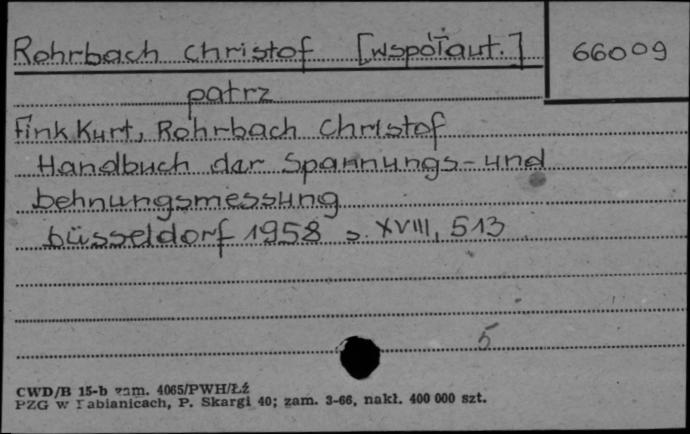 Rohrbach Christof [współaut.] 66009
patrz
Fink Kurt, Rohrbach Christof
Handbuch der Spannungs- und
Dehnungsmessung
Düsseldorf 1958 s. XVIII, 513
5
CWD/B 15-b zam. 4065/PWH/Łź
PZG w Pabianicach, P. Skargi 40; zam. 3-66, nakł. 400 000 szt.